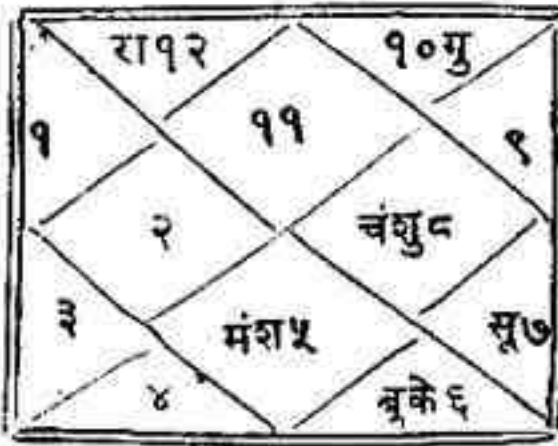 रा१२ १०गु
१ ११ ९
२ चंशु८
३ मंश५ सू७
४ बुके६